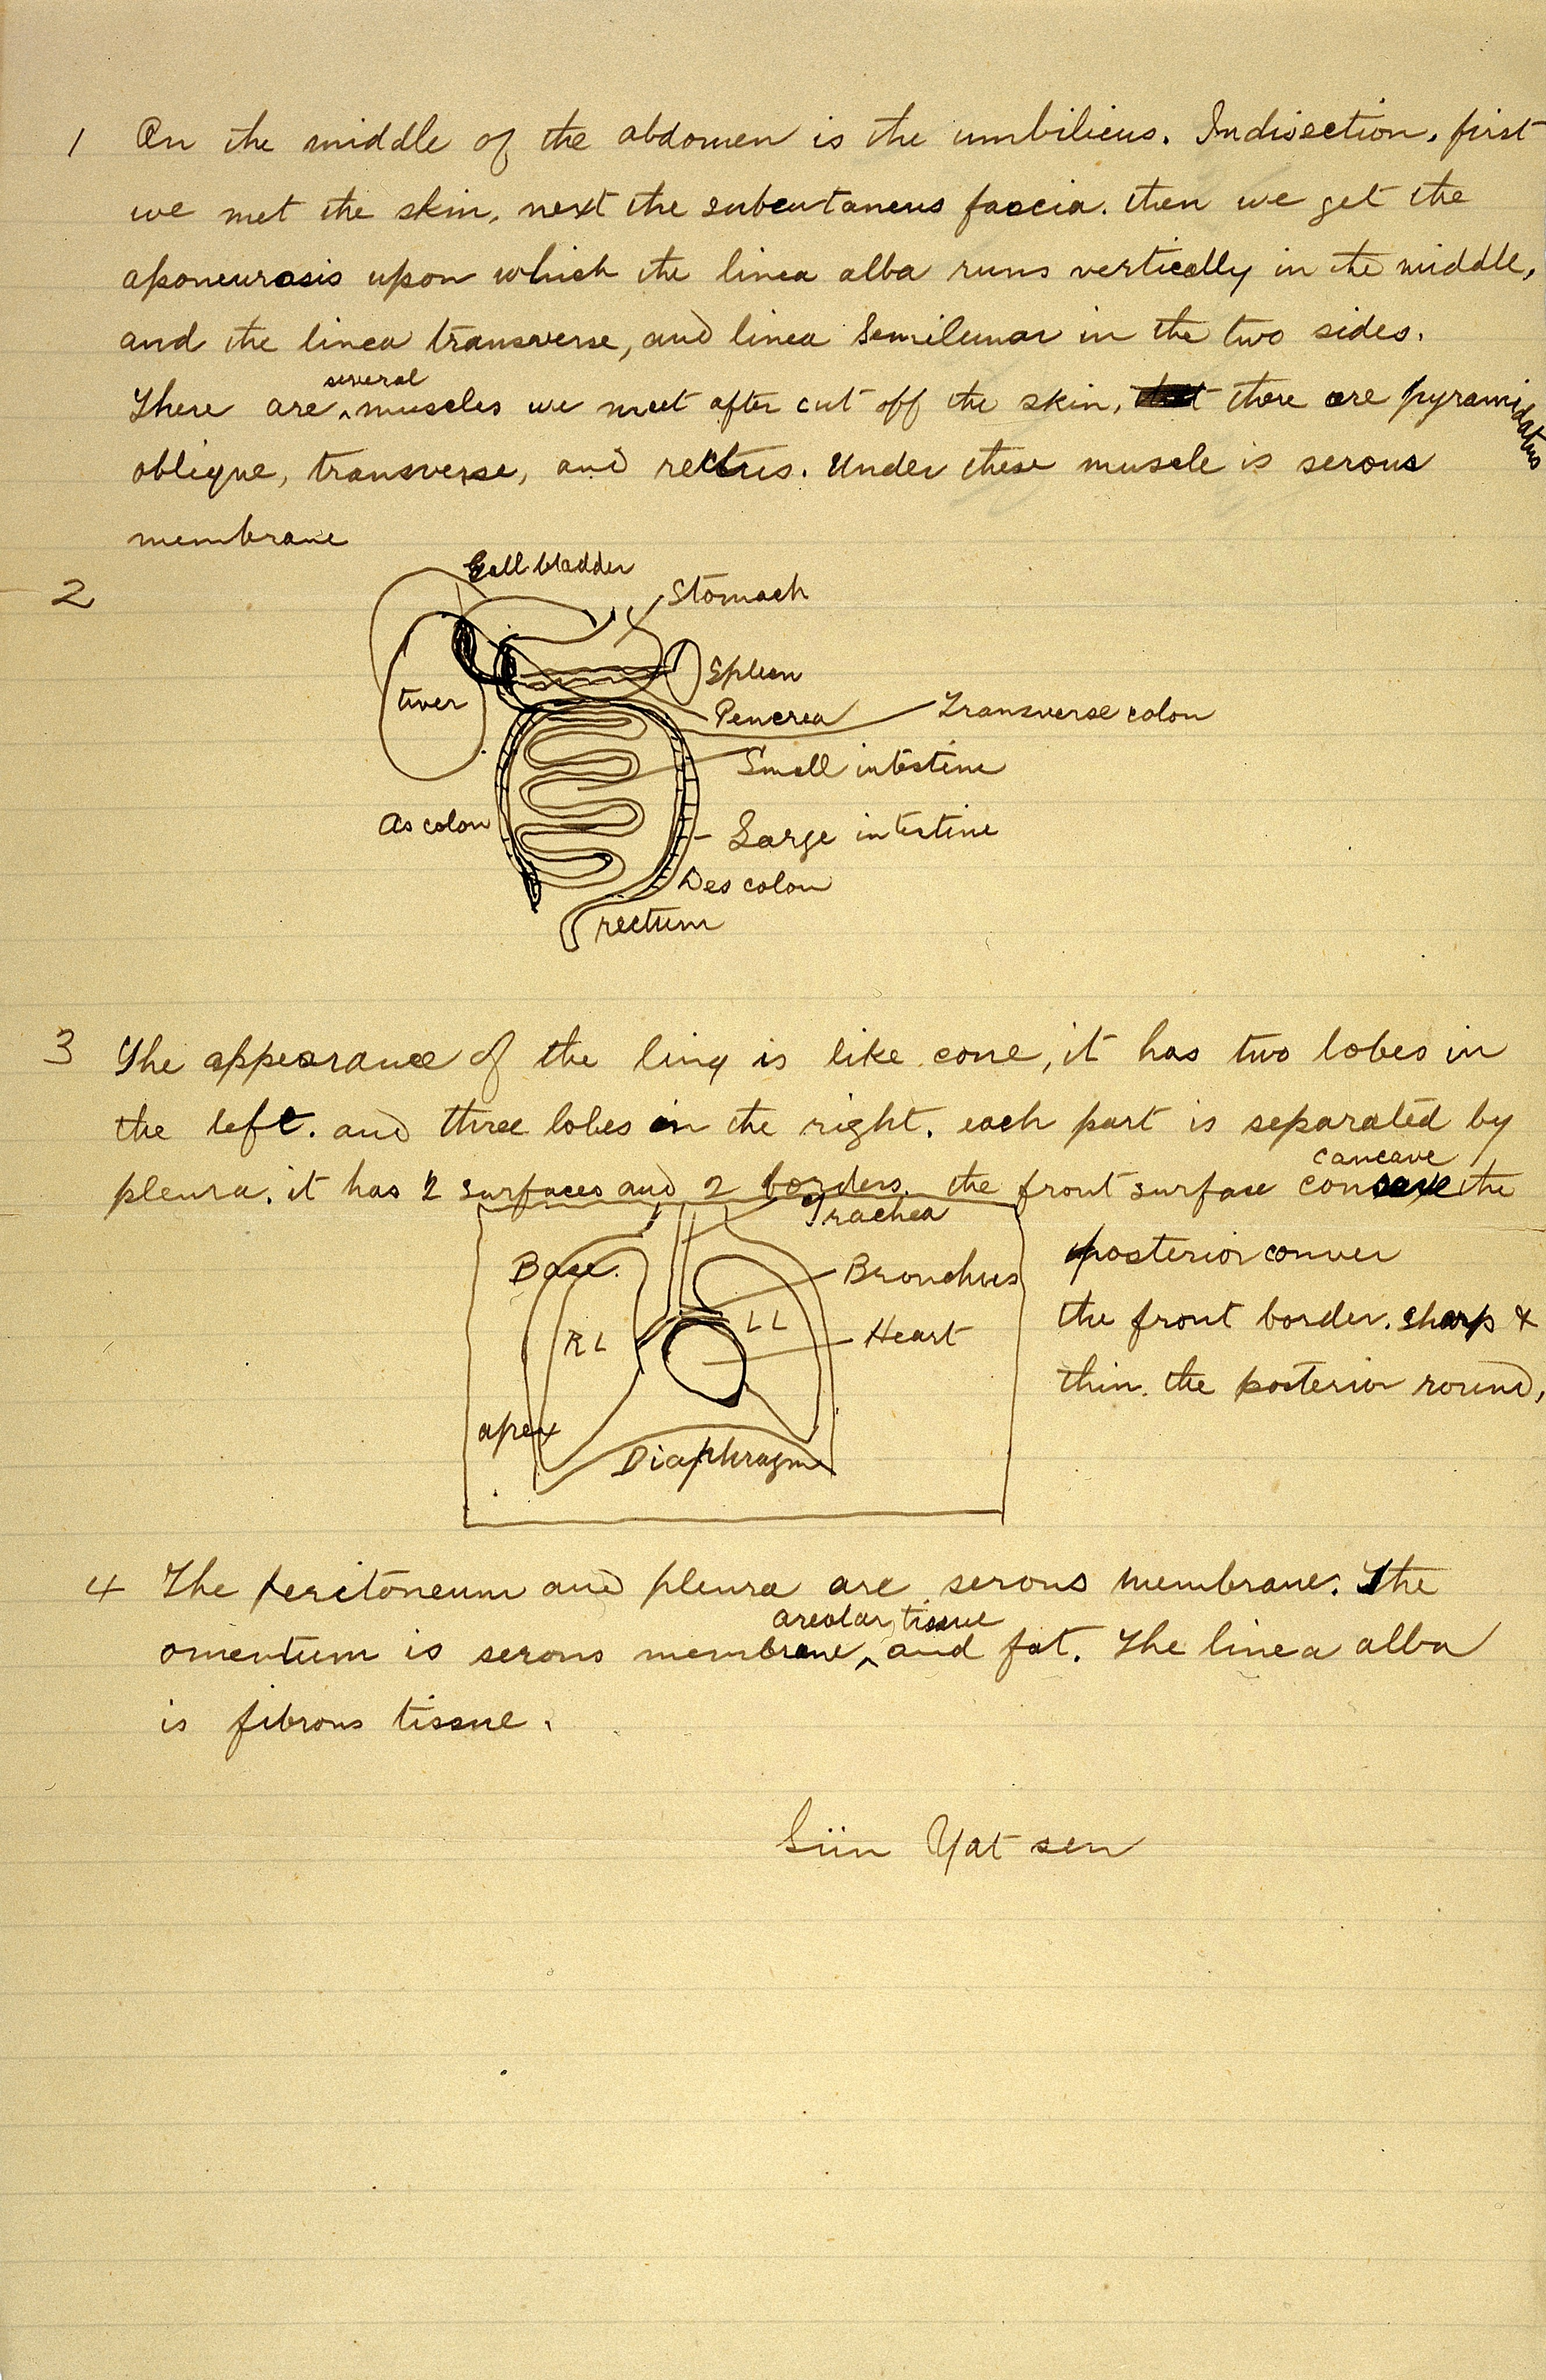 1 On the middle of the abdomen is the umbilicus. Indisection, first
we met the skin, next the subcutaneus fascia. then we get the
aponeurosis upon which the linea alba runs vertically in the middle,
and the linea transverse, and linea semilunar in the two sides.
several
There are ^ muscles we meet after cut off the skin, there are pyramidatus
oblique, transverse, and rectus. Under these muscle is serous
membrane
2
Gall bladder
Stomach
Spleen
Liver
Pencrea
Transverse colon
Small intestine
As colon
Large intestine
Des colon
rectum
3 The appearance of the ling is like cone, it has two lobes in
the left. and three lobes in the right. each part is separated by
concave
pleura. it has 2 surfaces and 2 borders. the front surface the
Trachea
posterior convex
Base
Bronchus
the front border. sharp &
R L
L L
Heart
thin. the posterior round,
apex
Diaphragm
4 The peritoneum and pleura are serous membrane. The
areolar tissue
omentum is serous membrane ^ and fat. The linea alba
is fibrous tissue.
Sün Yat sen